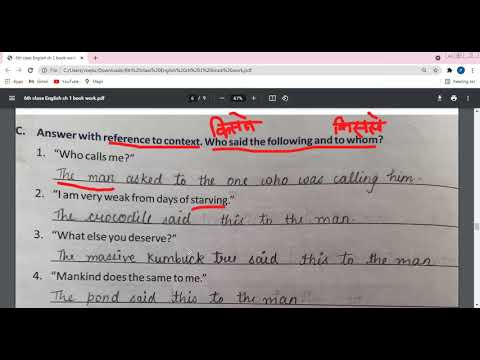 6th class English ch 1 book wor
C:/Users/veetu/Downloads/6th%20class%20English%20ch%201%20book%20work.pdf
Gmail
YouTube
Maps
Reading list
6th class English ch 1 book work.pdf
6 / 9
47%
किसने
किससे
C. Answer with reference to context. Who said the following and to whom?
1. "Who calls me?"
The man asked to the one who was calling him.
2. "I am very weak from days of starving."
The crocodile said this to the man.
3. "What else you deserve?"
The massive Kumbuck tree said this to the man
4. "Mankind does the same to me."
The pond said this to the man